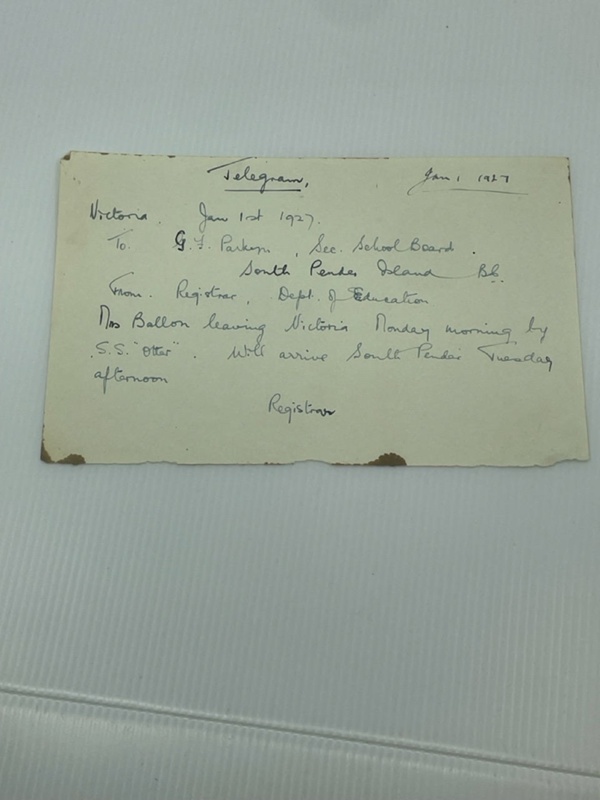 Telegram, Jan 1 1927
Victoria. Jan 1st 1927.
To. G. F. Parkyn, Sec. School Board.
South Pender Island B.C.
From. Registrar, Dept. of Education
Mrs Ballon leaving Victoria Monday morning by
S.S. "Otter". Will arrive South Pender Tuesday
afternoon
Registrar